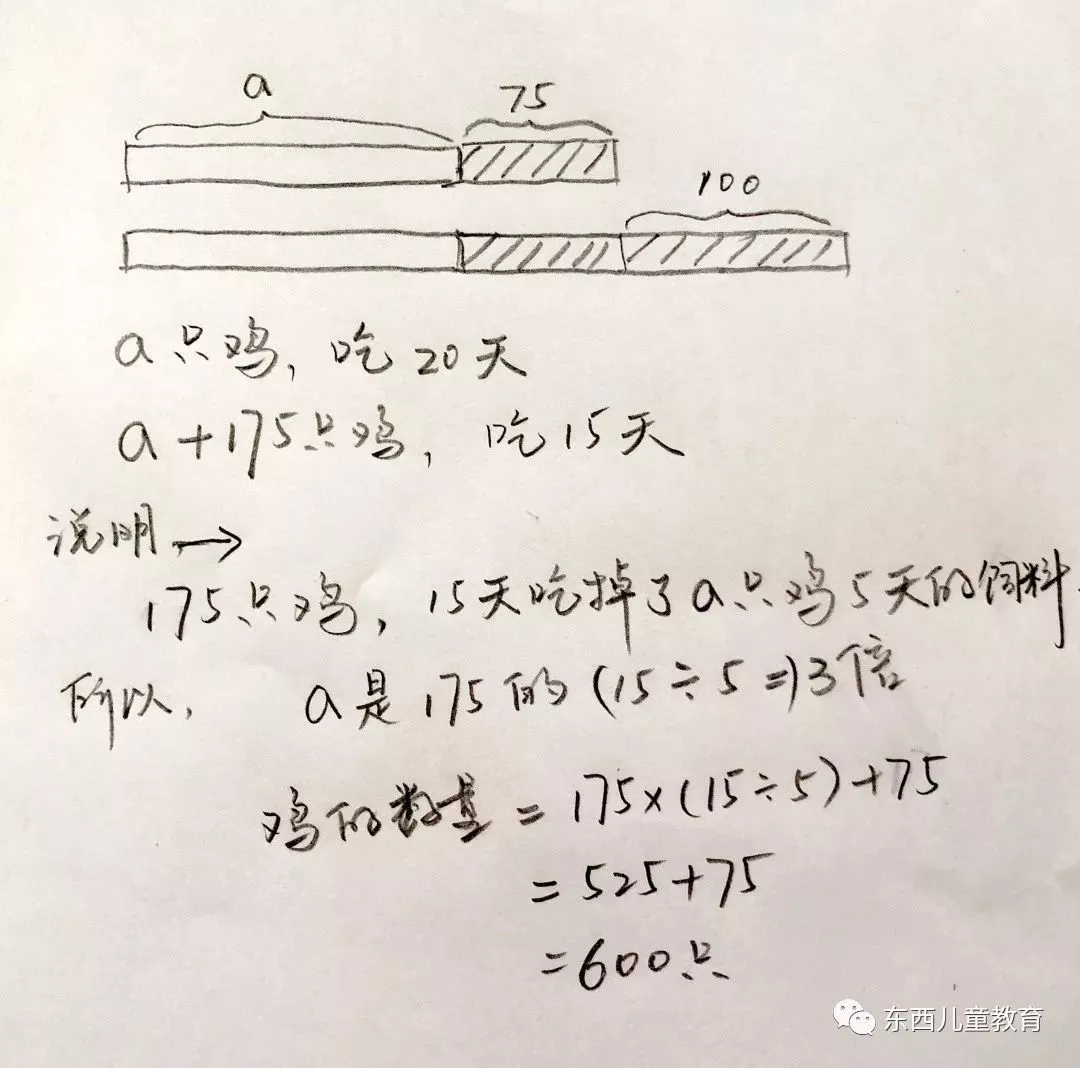 a
75
100
a只鸡，吃20天
a+175只鸡，吃15天
说明→
175只鸡，15天吃掉了a只鸡5天的饲料.
所以，a是175的(15÷5=)3倍
鸡的数量=175×(15÷5)+75
=525+75
=600只
东西儿童教育